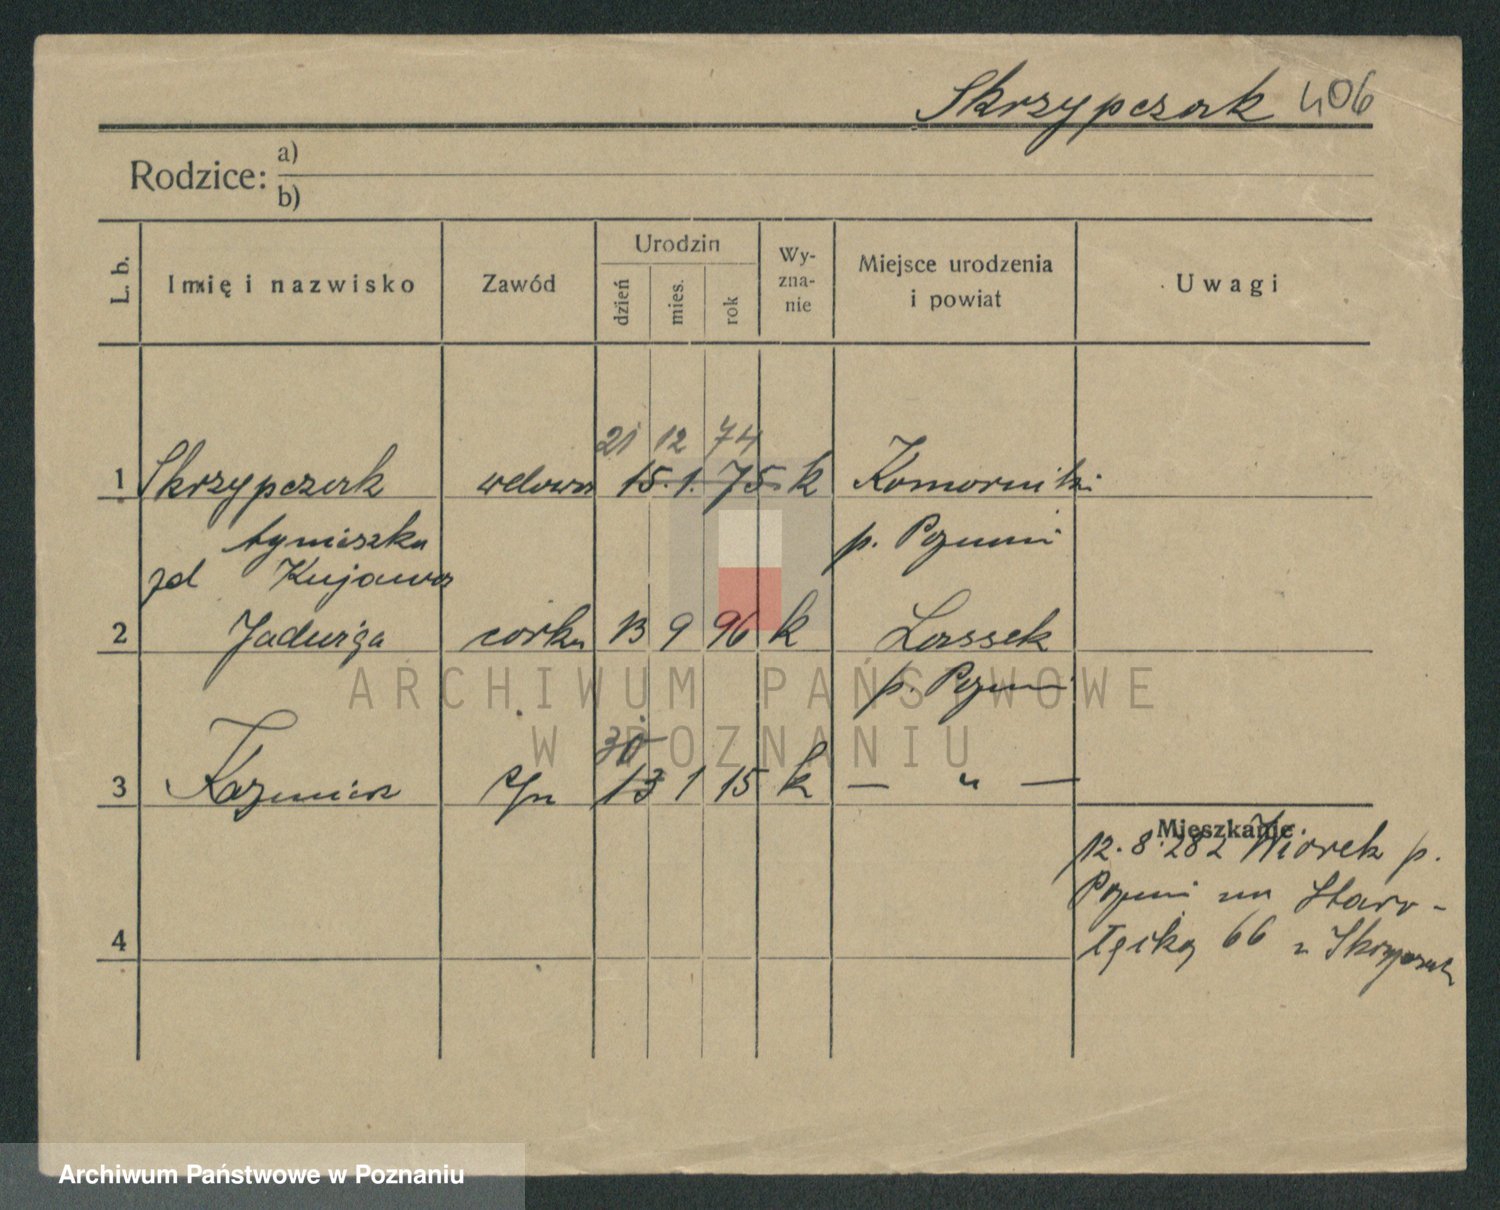 Skrzypczak 406
Rodzice: a)
b)
L. b. Imię i nazwisko Zawód Urodzin dzień mies. rok Wyznanie Miejsce urodzenia i powiat Uwagi
21 12 74
1 Skrzypczak wdowa 15. 1. 75. k Komorniki
Agnieszka p. Poznań
zd Kujawa
2 Jadwiga córka 13 9 96 k Lassek
p. Poznań
30
3 Kazimierz syn 13 1 15 k — " —
Mieszkanie.
12. 8. 282 Wiorek p.
Poznań na Staro-
łęcką 66 z Skrzypczak
4
ARCHIWUM PAŃSTWOWE
W POZNANIU
Archiwum Państwowe w Poznaniu